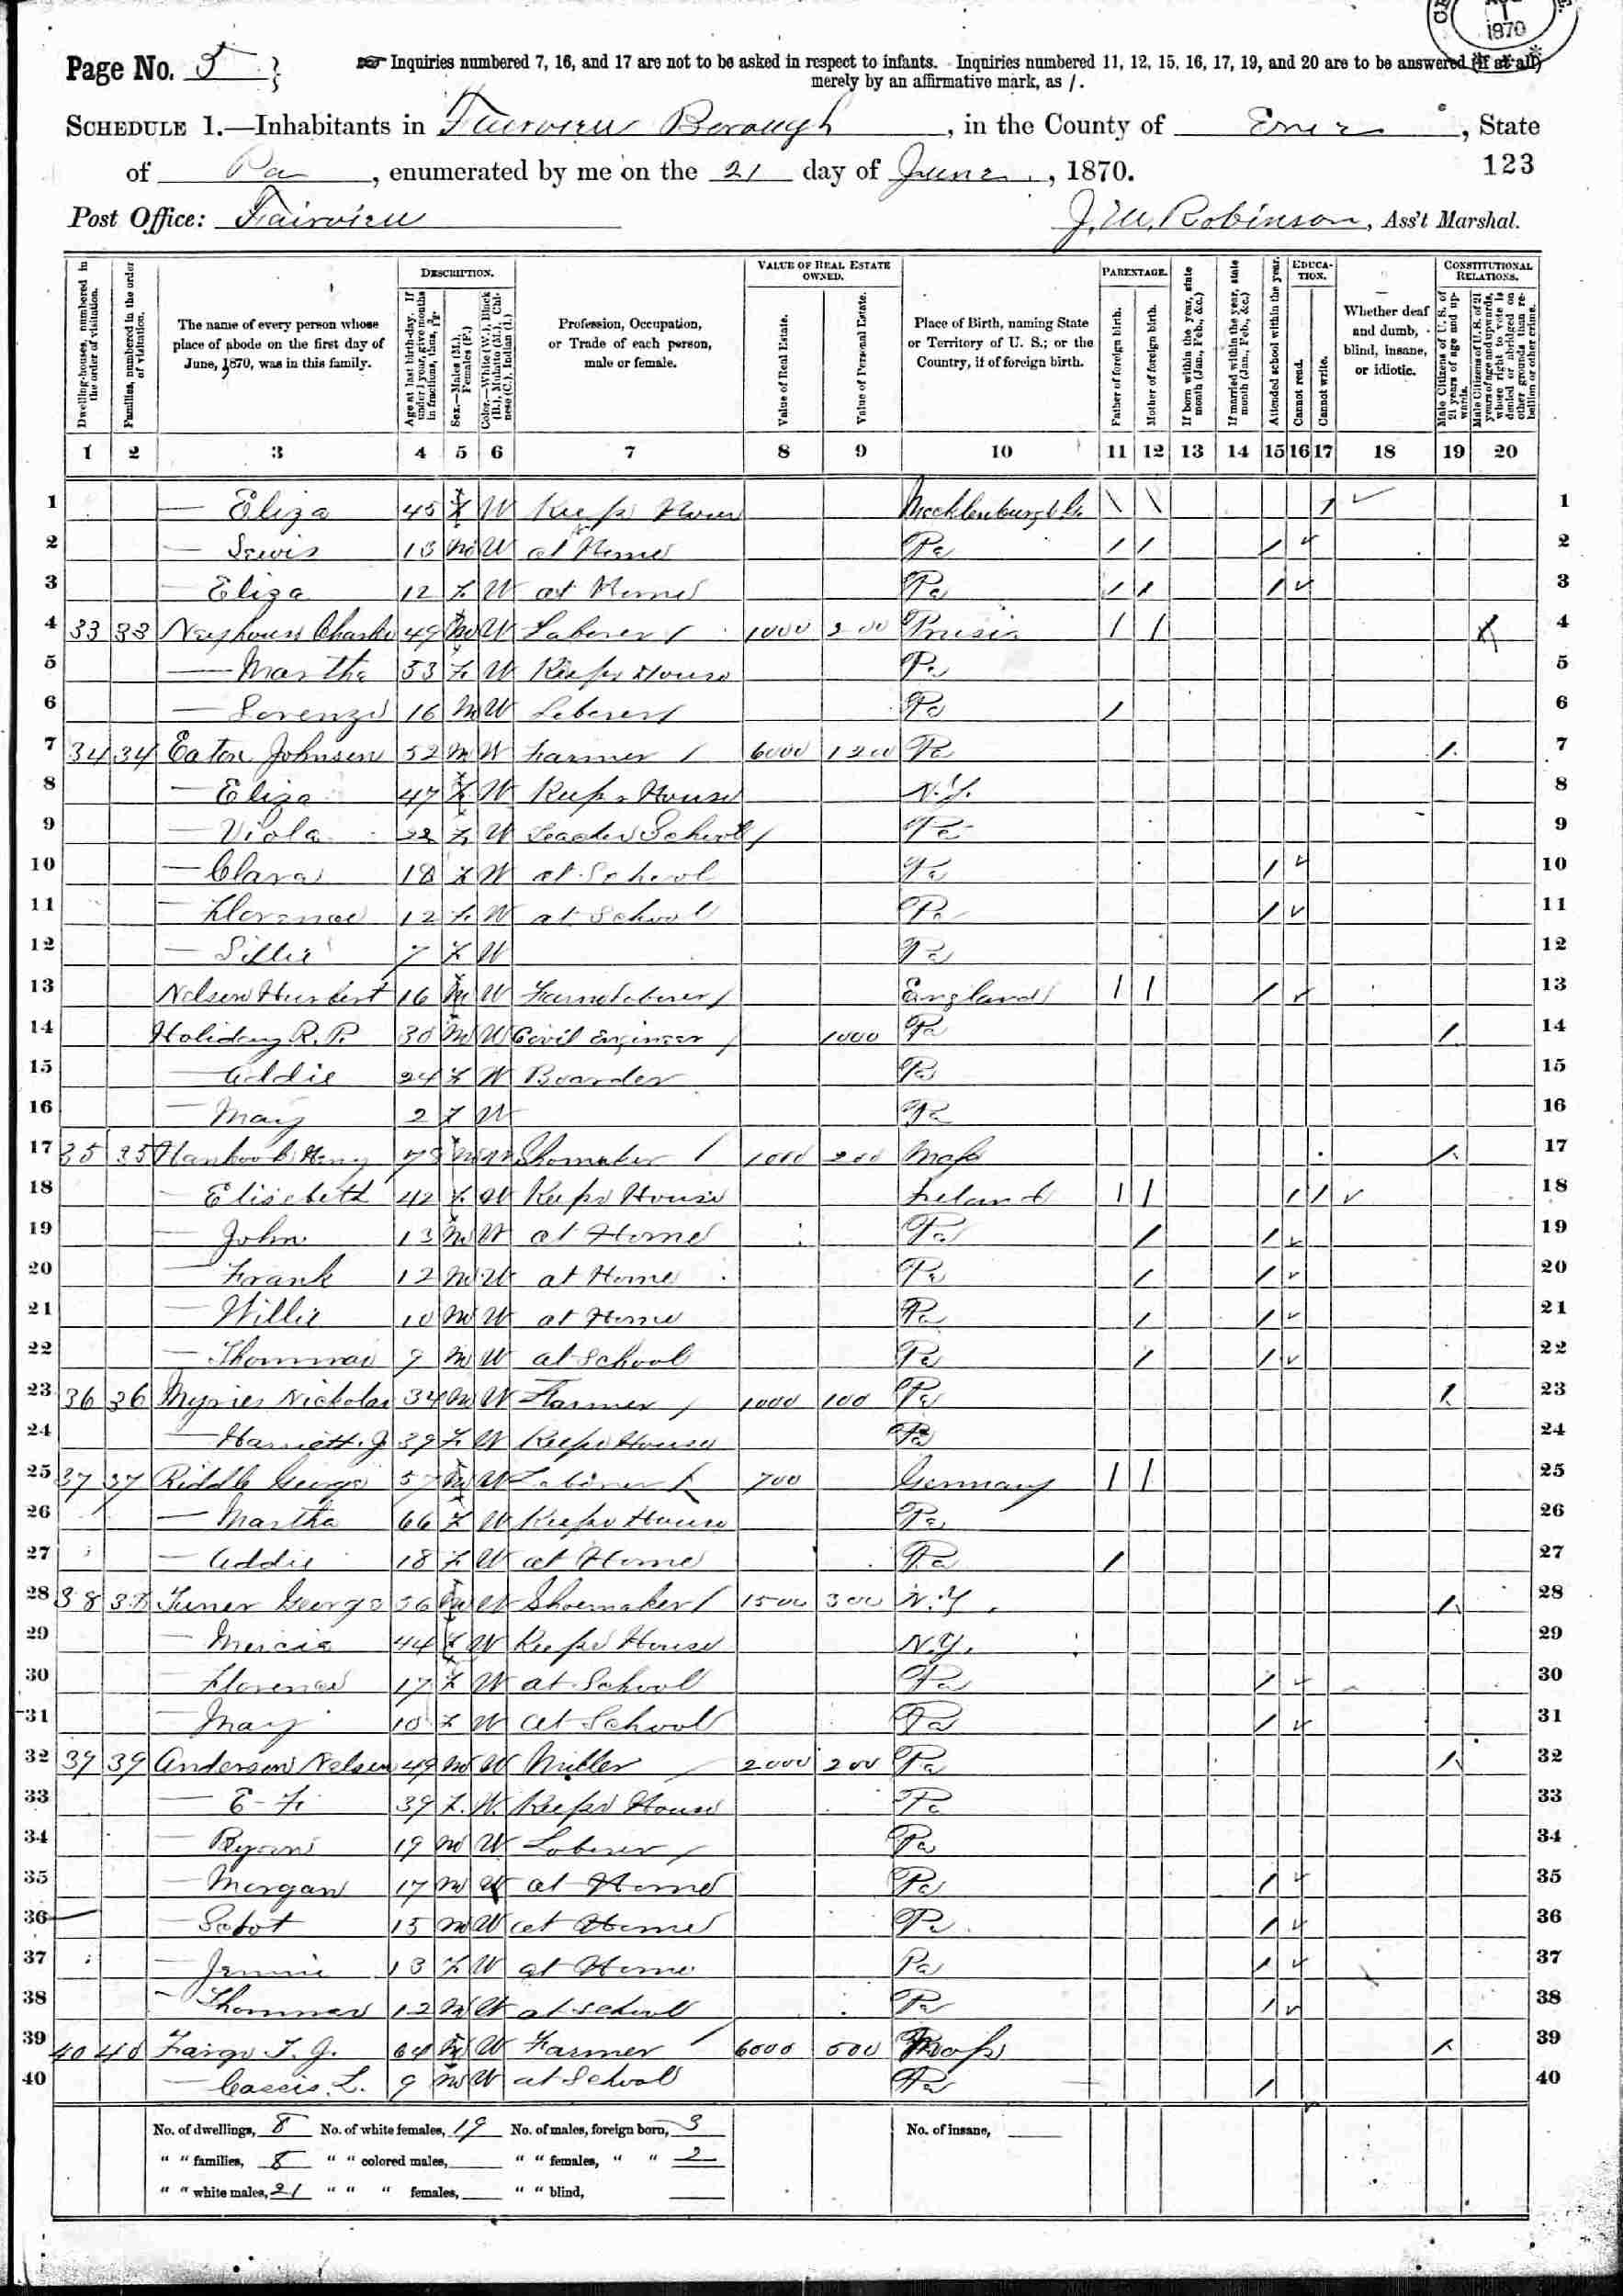 1870
Page No. 5
Inquiries numbered 7, 16, and 17 are not to be asked in respect to infants. Inquiries numbered 11, 12, 15, 16, 17, 19, and 20 are to be answered (if at all)
merely by an affirmative mark, as /.
SCHEDULE 1.—Inhabitants in Fairview Borough, in the County of Erie, State
of Pa, enumerated by me on the 21 day of June, 1870.
123
Post Office: Fairview
J. M. Robinson, Ass't Marshal.
Dwelling-houses, numbered in the order of visitation.
Families, numbered in the order of visitation.
The name of every person whose place of abode on the first day of June, 1870, was in this family.
DESCRIPTION.
Age at last birth-day. If under 1 year, give months in fractions, thus, 3/12.
Sex.—Males (M.), Females (F.)
Color.—White (W.), Black (B.), Mulatto (M.), Chinese (C.), Indian (I.)
Profession, Occupation, or Trade of each person, male or female.
VALUE OF REAL ESTATE OWNED.
Value of Real Estate.
Value of Personal Estate.
Place of Birth, naming State or Territory of U. S.; or the Country, if of foreign birth.
PARENTAGE.
Father of foreign birth.
Mother of foreign birth.
If born within the year, state month (Jan., Feb., &c.)
If married within the year, state month (Jan., Feb., &c.)
EDUCATION.
Attended school within the year.
Cannot read.
Cannot write.
Whether deaf and dumb, blind, insane, or idiotic.
CONSTITUTIONAL RELATIONS.
Male Citizens of U. S. of 21 years of age and upwards.
Male Citizens of U. S. of 21 years of age and upwards, whose right to vote is denied or abridged on other grounds than rebellion or other crime.
1 2 3 4 5 6 7 8 9 10 11 12 13 14 15 16 17 18 19 20
1 — Eliza 45 F W Keeps House 1 1 / 1
2 — Lewis 13 M W at Home Pa / / / 2
3 — Eliza 12 F W at Home Pa / / / 3
4 33 33 49 M W Laborer 1000 200 Prusia / / 4
5 — Martha 53 F W Keeps House Pa 5
6 — Lorenzo 16 M W Laborer Pa / 6
7 34 34 Eaton Johnson 52 M W Farmer 6000 1200 Pa / 7
8 — Eliza 47 F W Keeps House N.Y. 8
9 — Viola 22 F W Teaches School Pa 9
10 — Clara 18 F W at School Pa / 10
11 — Florence 12 F W at School Pa / 11
12 — Lillie 7 F W Pa 12
13 Nelson Hurbert 16 M W Farm Laborer England / / / 13
14 Holiday R. P. 30 M W Civil Engineer 1000 Pa / 14
15 — Addie 24 F W Boarder Pa 15
16 — May 2 F W Pa 16
17 35 35 M W Shomaker 1000 200 Mass / 17
18 — Elisebeth 42 F W Keeps House Ireland / / / / 18
19 — John 13 M W at Home Pa / / 19
20 — Frank 12 M W at Home Pa / / 20
21 — Willie 10 M W at Home Pa / / 21
22 — Thommas 9 M W at School Pa / / 22
23 36 36 Nickolas 34 M W Farmer 1000 100 Pa / 23
24 — Harriett J 39 F W Keeps House Pa 24
25 37 37 Riddle George 57 M W Laborer 700 Germany / / 25
26 — Martha 66 F W Keeps House Pa 26
27 — Addie 18 F W at Home Pa / 27
28 38 38 Turner George 56 M W Shoemaker 1500 300 N.Y. / 28
29 — 44 F W Keeps House N.Y. 29
30 — Florence 17 F W at School Pa / 30
31 — May 10 F W at School Pa / 31
32 39 39 Anderson Nelson 49 M W Miller 2000 200 Pa / 32
33 — E. F. 39 F. W. Keeps House Pa 33
34 — 19 M W Laborer Pa 34
35 — Morgan 17 M W at Home Pa / 35
36 — Scbot 15 M W at Home Pa / 36
37 — Jennie 13 F W at Home Pa / 37
38 — Thommas 12 M W at school Pa / 38
39 40 40 Fargo T. J. 64 M W Farmer 6000 500 Mass / 39
40 — L. 9 M W at School Pa / 40
No. of dwellings, 8 No. of white females, 19 No. of males, foreign born, 3 No. of insane,
" " families, 8 " " colored males, " " females, " " 2
" " white males, 21 " " " females, " " blind,